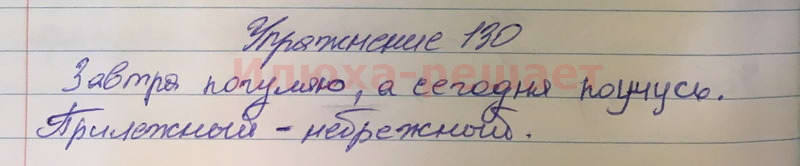 Упражнение 130
Илюха-решает
Завтра погуляю, а сегодня поучусь.
Прилежный - небрежный.